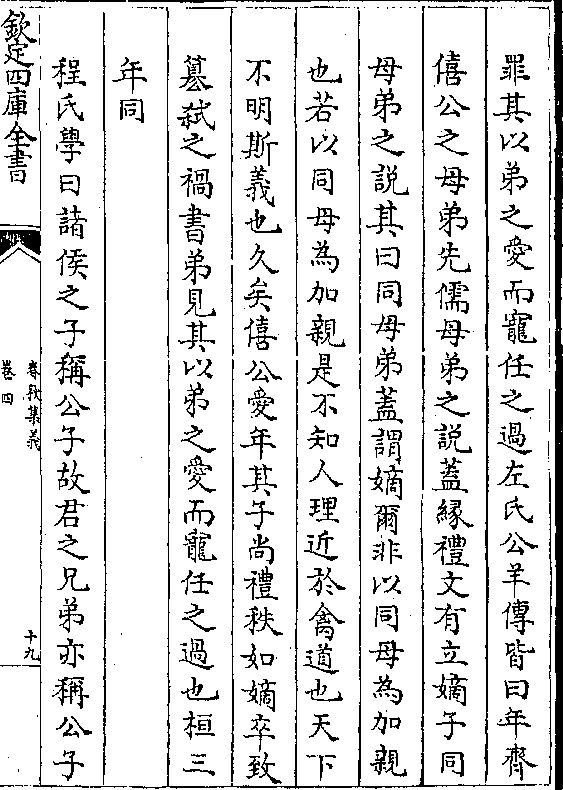 罪其以弟之愛而寵任之過左氏公羊傳皆曰年齊
僖公之母弟先儒母弟之說蓋緣禮文有立嫡子同
母弟之說其曰同母弟蓋謂嫡爾非以同母為加親
也若以同母為加親是不知人理近於禽道也天下
不明斯義也久矣僖公愛年其子尚禮秩如嫡卒致
簒弑之禍書弟見其以弟之愛而寵任之過也桓三
年同
程氏學曰諸侯之子稱公子故君之兄弟亦稱公子
欽定四庫全書
春秋集義
卷四
十九